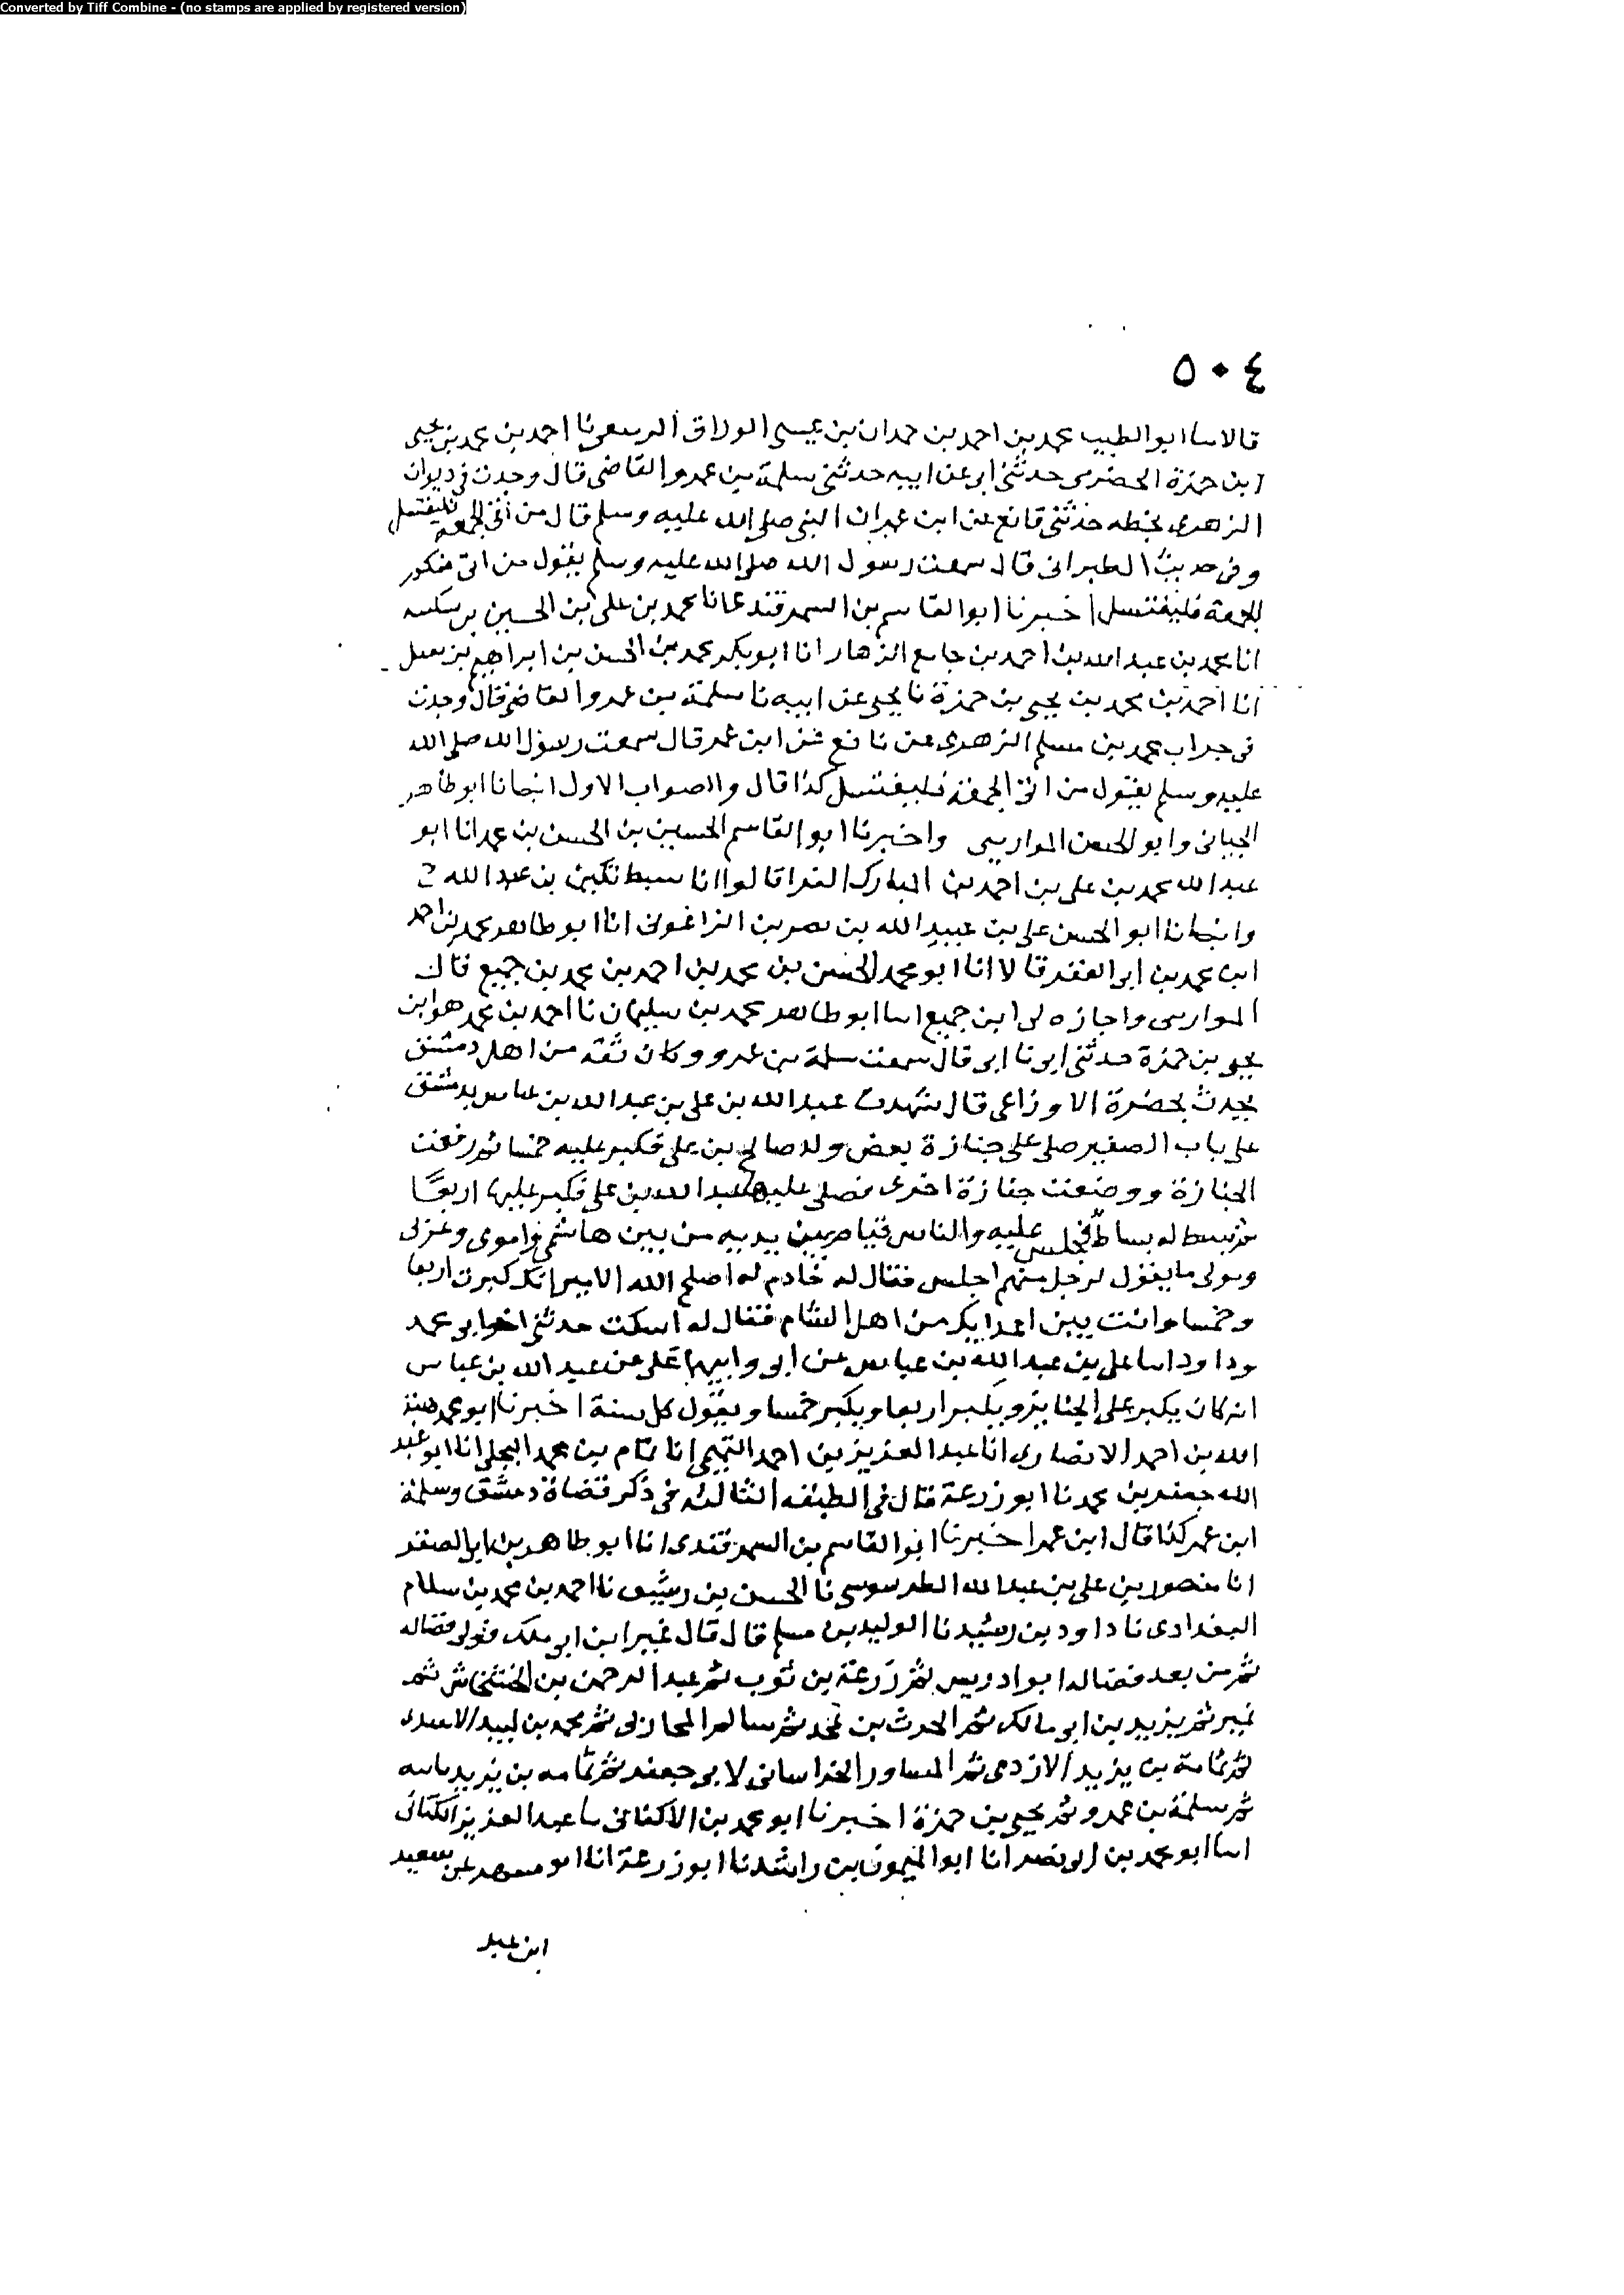 Converted by Tiff Combine - (no stamps are applied by registered version)
٥٠٤
قالا اسا ابو الطيب محمد بن احمد بن حمدان بن عيسى الوراق الرسعنى نا احمد بن محمد بن يحيى
ابن حمزة الحضرمى حدثنى ابى عن ابيه حدثنى سلمة بن عمرو القاضى قال وجدت فى ديوان
الزهرى بخطه حدثنى نافع عن ابن عمر ان النبى صلى الله عليه وسلم قال من اتى الجمعة فليغتسل
وفى حديث الطبرانى قال سمعت رسول الله صلى الله عليه وسلم يقول من اتى منكم
الجمعة فليغتسل اخبرنا ابو القاسم بن السمرقندى انا محمد بن على بن الحسين بن سكينه
انا محمد بن عبد الله بن احمد بن جامع الزهار انا ابو بكر محمد بن الحسن بن ابراهيم بن
انا احمد بن محمد بن يحيى بن حمزة نا يحيى عن ابيه نا سلمة بن عمرو القاضى قال وجدت
فى جراب محمد بن مسلم الزهرى عن نافع عن ابن عمر قال سمعت رسول الله صلى الله
عليه وسلم يقول من اتى الجمعة فليغتسل كذا قال والصواب الاول انبانا ابو طاهر
الحنانى وابو الحسن الموازينى واخبرنا ابو القاسم الحسين بن الحسن بن محمد انا ابو
عبد الله محمد بن على بن احمد بن المبارك الفرا قالوا انا سبط تكين بن عبد الله ح
وانبانا ابو الحسن على بن عبيد الله بن نصر بن الزاغونى انا ابو طاهر محمد بن احمد
ابن محمد بن ابى الصقر قالا انا ابو محمد الحسن بن محمد بن احمد بن محمد بن جميع قال
الموازينى واجازه لى ابن جميع اسا ابو طاهر محمد بن سليمان نا احمد بن محمد هو ابن
يحيى بن حمزة حدثنى ابى نا ابى قال سمعت سلمة بن عمرو وكان ثقه من اهل دمشق
يحدث بحضرة الاوزاعى قال شهدت عبد الله بن على بن عبد الله بن عباس بدمشق
على باب الصغير صلى على جنازة بعض ولد صالح بن على فكبر عليه خمسا ثم رفعت
الجنازة ووضعت جنازة اخرى فصلى عليها عبد الله بن على فكبر عليها اربعًا
ثم بسط له بساط فجلس عليه والناس قيام بين يديه من بين هاشمى واموى وعربى
ومولى ما يقول لرجل منهم اجلس فقال له خادم له اصلح الله الامير انك كبرت اربعا
وخمسا وانت بين اعدايك من اهل الشام فقال له اسكت حدثنى اخواى محمد
وداود ابنا على بن عبد الله بن عباس عن ابى وابيهما على عن عبد الله بن عباس
انه كان يكبر على الجنايز ويكبر اربعا ويكبر خمسا ويقول كل سنة اخبرنا ابو محمد هبة
الله بن احمد الانصارى انا عبد العزيز بن احمد التميمى انا تمام بن محمد البجلى انا ابو عبد
الله جعفر بن محمد نا ابو زرعة قال فى الطبقه الثالثه فى ذكر قضاة دمشق وسلمة
ابن عمر كذا قال ابن عمر اخبرنا ابو القاسم بن السمرقندى انا ابو طاهر بن ابى الصقر
انا منصور بن على بن عبد الله الطرسوسى نا الحسن بن رشيق نا احمد بن محمد بن سلام
البغدادى نا داود بن رشيد نا الوليد بن مسلم قال قال نمير ابن ابى ملك فولى فضاله
ثم من بعد فضاله ابو ادريس ثم زرعة بن ثوب ثم عبد الرحمن بن الخشخاش ثم
نمير ثم يزيد بن ابى مالك ثم الحرث بن محمد ثم سالم المحاربى ثم محمد بن لبيد الاسدى
ثم ثمامة بن يزيد الازدى ثم المساور الخراسانى لابى جعفر ثم ثمامه بن يزيد
ثم سلمة بن عمرو ثم يحيى بن حمزة اخبرنا ابو محمد بن الاكفانى سا عبد العزيز الكتانى
اسا ابو محمد بن ابى نصر انا ابو الميمون بن راشد نا ابو زرعة انا ابو مسهر عن سعيد
ابن عبد